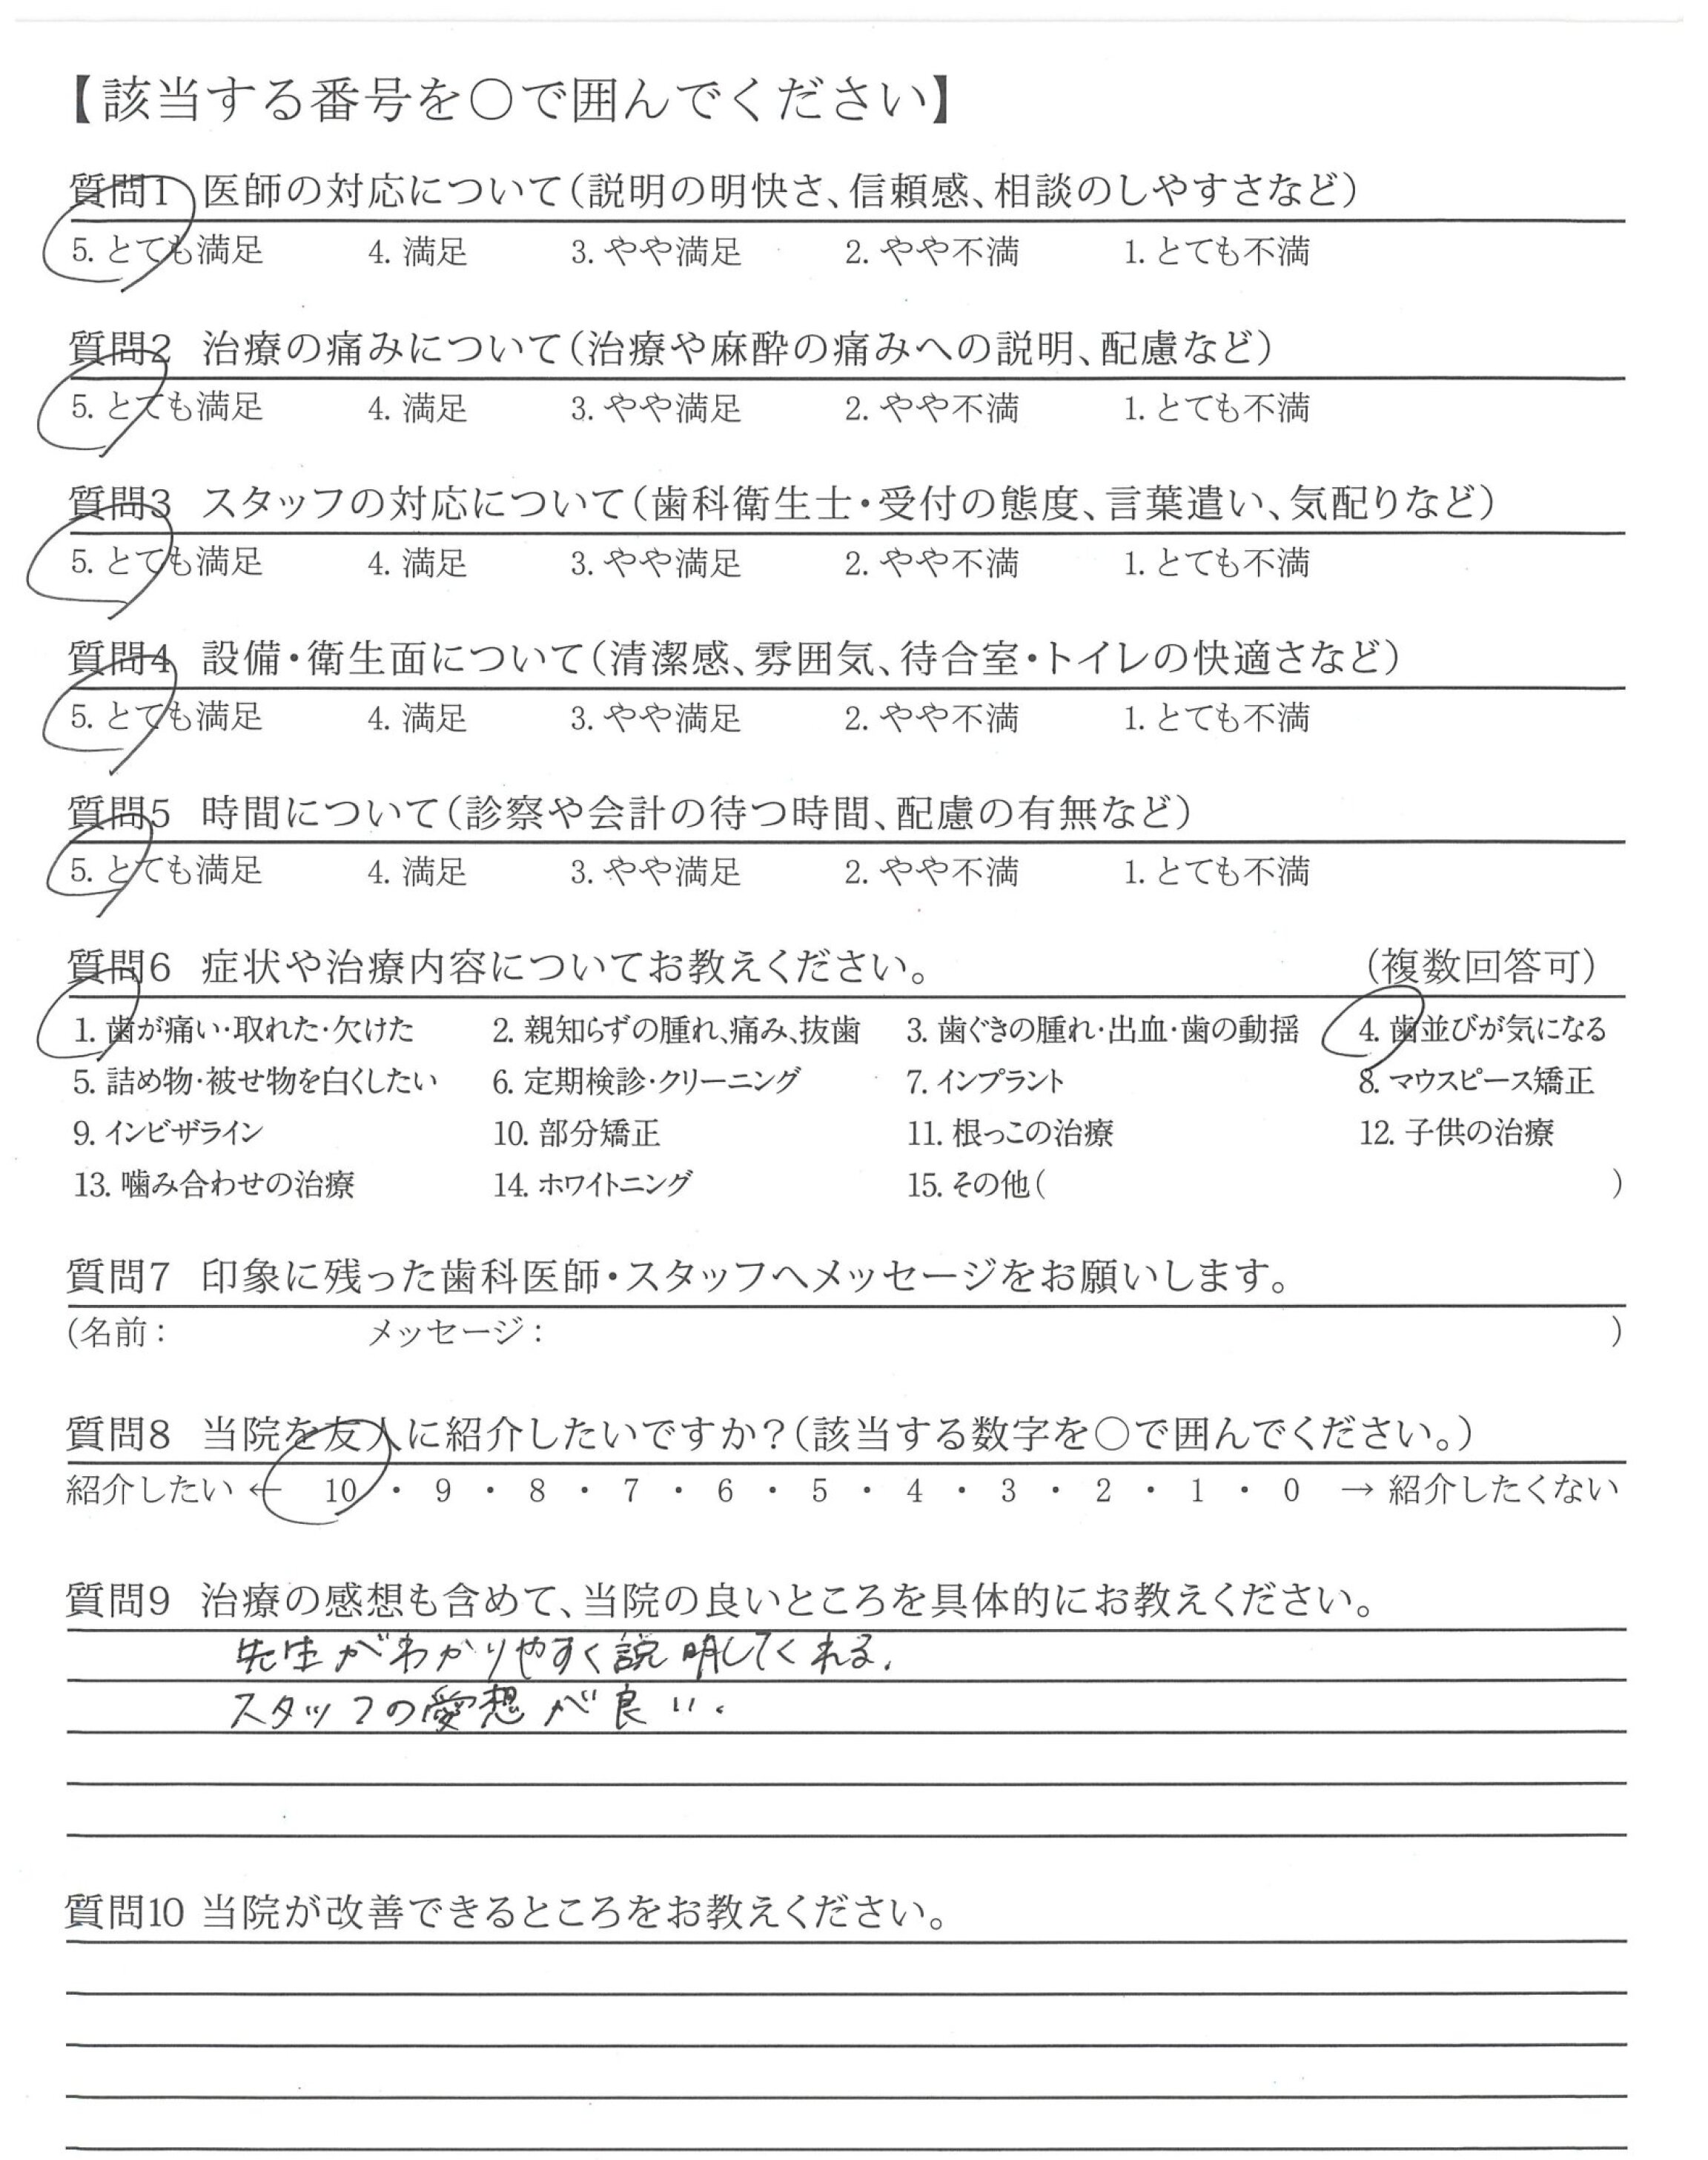 【該当する番号を○で囲んでください】
質問1 医師の対応について(説明の明快さ、信頼感、相談のしやすさなど)
5. とても満足 4. 満足 3. やや満足 2. やや不満 1. とても不満
質問2 治療の痛みについて(治療や麻酔の痛みへの説明、配慮など)
5. とても満足 4. 満足 3. やや満足 2. やや不満 1. とても不満
質問3 スタッフの対応について(歯科衛生士・受付の態度、言葉遣い、気配りなど)
5. とても満足 4. 満足 3. やや満足 2. やや不満 1. とても不満
質問4 設備・衛生面について(清潔感、雰囲気、待合室・トイレの快適さなど)
5. とても満足 4. 満足 3. やや満足 2. やや不満 1. とても不満
質問5 時間について(診察や会計の待つ時間、配慮の有無など)
5. とても満足 4. 満足 3. やや満足 2. やや不満 1. とても不満
質問6 症状や治療内容についてお教えください。 (複数回答可)
1. 歯が痛い・取れた・欠けた 2. 親知らずの腫れ、痛み、抜歯 3. 歯ぐきの腫れ・出血・歯の動揺 4. 歯並びが気になる
5. 詰め物・被せ物を白くしたい 6. 定期検診・クリーニング 7. インプラント 8. マウスピース矯正
9. インビザライン 10. 部分矯正 11. 根っこの治療 12. 子供の治療
13. 噛み合わせの治療 14. ホワイトニング 15. その他( )
質問7 印象に残った歯科医師・スタッフへメッセージをお願いします。
(名前: メッセージ: )
質問8 当院を友人に紹介したいですか?(該当する数字を○で囲んでください。)
紹介したい ← 10 ・ 9 ・ 8 ・ 7 ・ 6 ・ 5 ・ 4 ・ 3 ・ 2 ・ 1 ・ 0 → 紹介したくない
質問9 治療の感想も含めて、当院の良いところを具体的にお教えください。
先生がわかりやすく説明してくれる。
スタッフの愛想が良い。
質問10 当院が改善できるところをお教えください。